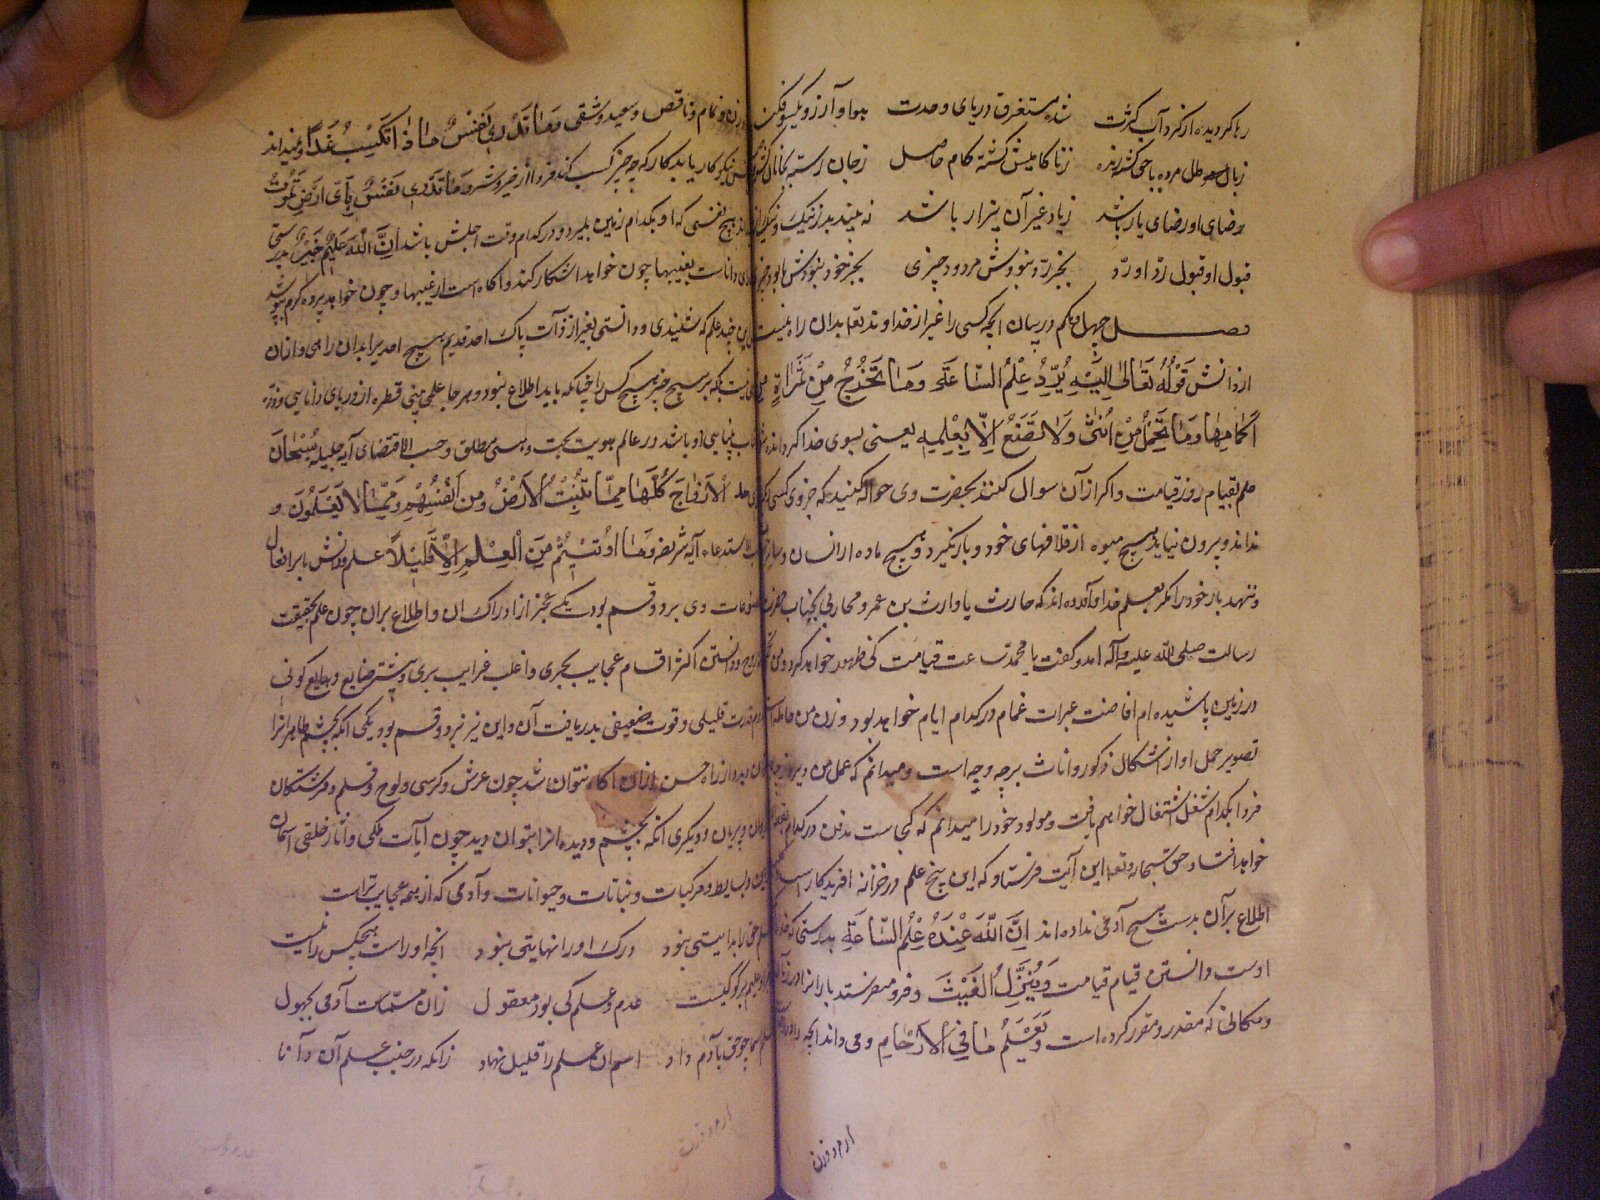 رها کردیده از کرد آب کثرت شده مستغرق دریای وحدت هوا و آرزو یکسو فکن
زباطل مرده با حق کشته زنده زناکامیش کشته کام حاصل زجان رسته بجانان
رضای او رضای یار باشد زیاد غیر آن بیزار باشد نه بیند بد ز نیک و نیک از
قبول او قبول رد او رد بجز رد و نبودش مردود چیزی بجز خود نبودش نابود چیزی
فصل چهل و یکم در بیان آنچه کسی را غیر از خداوند تعالی بدان راه نیست
از دانش قَوْلُهُ تَعَالیٰ اِلَیْهِ یُرَدُّ عِلْمُ السَّاعَةِ وَمَا تَخْرُجُ مِنْ ثَمَرَاتٍ
اَکْمَامِهَا وَمَا تَحْمِلُ مِنْ اُنْثیٰ وَلَا تَضَعُ اِلَّا بِعِلْمِهِ یعنی بسوی خدا کردانده
علم بقیام روز قیامت و اکر از آن سوال کنند بحضرت وی حواله کنید که جز وی کسی
نداند و بیرون نیاید هیچ میوه از غلافهای خود و بار نکیرد هیچ ماده از انسان و
و ننهد بار خود را مکر بعلم خدا و آورده اند که حارث یا وارث بن عمرو محاربی بجناب حضرت
رسالت صلی الله علیه و آله امد و کفت یا محمد ساعت قیامت کی ظهور خواهد کرد و من
در زمین پاشیده ام افاضت عبرات غمام در کدام ایام خواهد بود و زن من حامله است
تصویر حمل او از اشکال ذکور و اناث بر چه وجه است و میدانم که عمل من دیروز
فردا بکدام شغل اشتغال خواهم یافت و مولود خود را میدانم که کجاست مدفن در کدام
خواهد افتاد و حق سبحانه و تعالی این آیت فرستاد که این پنج علم در خزانه افریدکار است
اطلاع بر آن بدست هیچ آدمی نداده اند اِنَّ اللّٰهَ عِنْدَهُ عِلْمُ السَّاعَةِ بدرستی که
اوست دانستن قیام قیامت وَیُنَزِّلُ الْغَیْثَ و فرو میفرستد باران را در
و مکانی که مقدر و مقرر کرده است وَیَعْلَمُ مَا فِی الْاَرْحَامِ و می داند انچه را در
ارم دو زن
و تمام و ناقص و سعید و شقی وَمَا تَدْرِی نَفْسٌ مَاذَا تَکْسِبُ غَدًا و نمیداند
نیکوکار یا بدکار که چه چیز کسب کند فردا از خیر و شر وَمَا تَدْرِی نَفْسٌ بِاَیِّ اَرْضٍ تَمُوتُ
هیچ نفسی که او بکدام زمین بمیرد و در کدام وقت اجلش باشد اِنَّ اللّٰهَ عَلِیمٌ خَبِیرٌ بدرستی
داناست بغیبها چون خواهد اشکار کند و اکاه است از غیبها و چون خواهد پرده کرم پوشد
این چند علم که شنیدی و دانستی بغیر از ذات پاک احد قدیم هیچ احدیرا بدان راهی و از ان
نیست که بر هیچ چیز هیچ کس را چنانکه باید اطلاع نبود و هر جا علمی بینی قطره از دریای دانایی
باشد در عالم هویت بحت و هستی مطلق و حسب الاقتضای آیه جلیله سُبْحَانَ
الْاَزْوَاجَ کُلَّهَا مِمَّا تُنْبِتُ الْاَرْضُ وَمِنْ اَنْفُسِهِمْ وَمِمَّا لَا یَعْلَمُونَ و
استدعاء آیه شریفه وَمَا اُوتِیتُمْ مِنَ الْعِلْمِ اِلَّا قَلِیلًا علم و دانش ما بر افعال
مصنوعات وی بر دو قسم بود یکی عجز از ادراک ان و اطلاع بران چون علم بحقیقت
روح و دانستن اکثر اقسام عجایب بحری و اغلب غرایب بری و بیشتر صنایع و بدایع کونی
قدرت قلیلی و قوت ضعیفی بدریافت آن و این نیز بر دو قسم بود یکی انکه بچشم ظاهر انرا
دید و از راه حس ازان اکاه نتوان شد چون عرش و کرسی و لوح و قلم و فرشتکان
و پریان و دیکری انکه بچشم و دیده انرا بتوان دید چون ایات ملکی و اثار خلقی اسمان
و بسایط و مرکبات و نباتات و حیوانات و آدمی که از همه عجایب تر است
علم حق را بدایتی نبود درک او را نهایتی نبود انچه او راست هیچکس را نیست
کیست عدم و علم کی بود معقول زان مسمّاست آدمی بجهول
علم اسما چو حق بآدم داد اسم ان علم را قلیل نهاد زانکه در جنب علم آن دانا